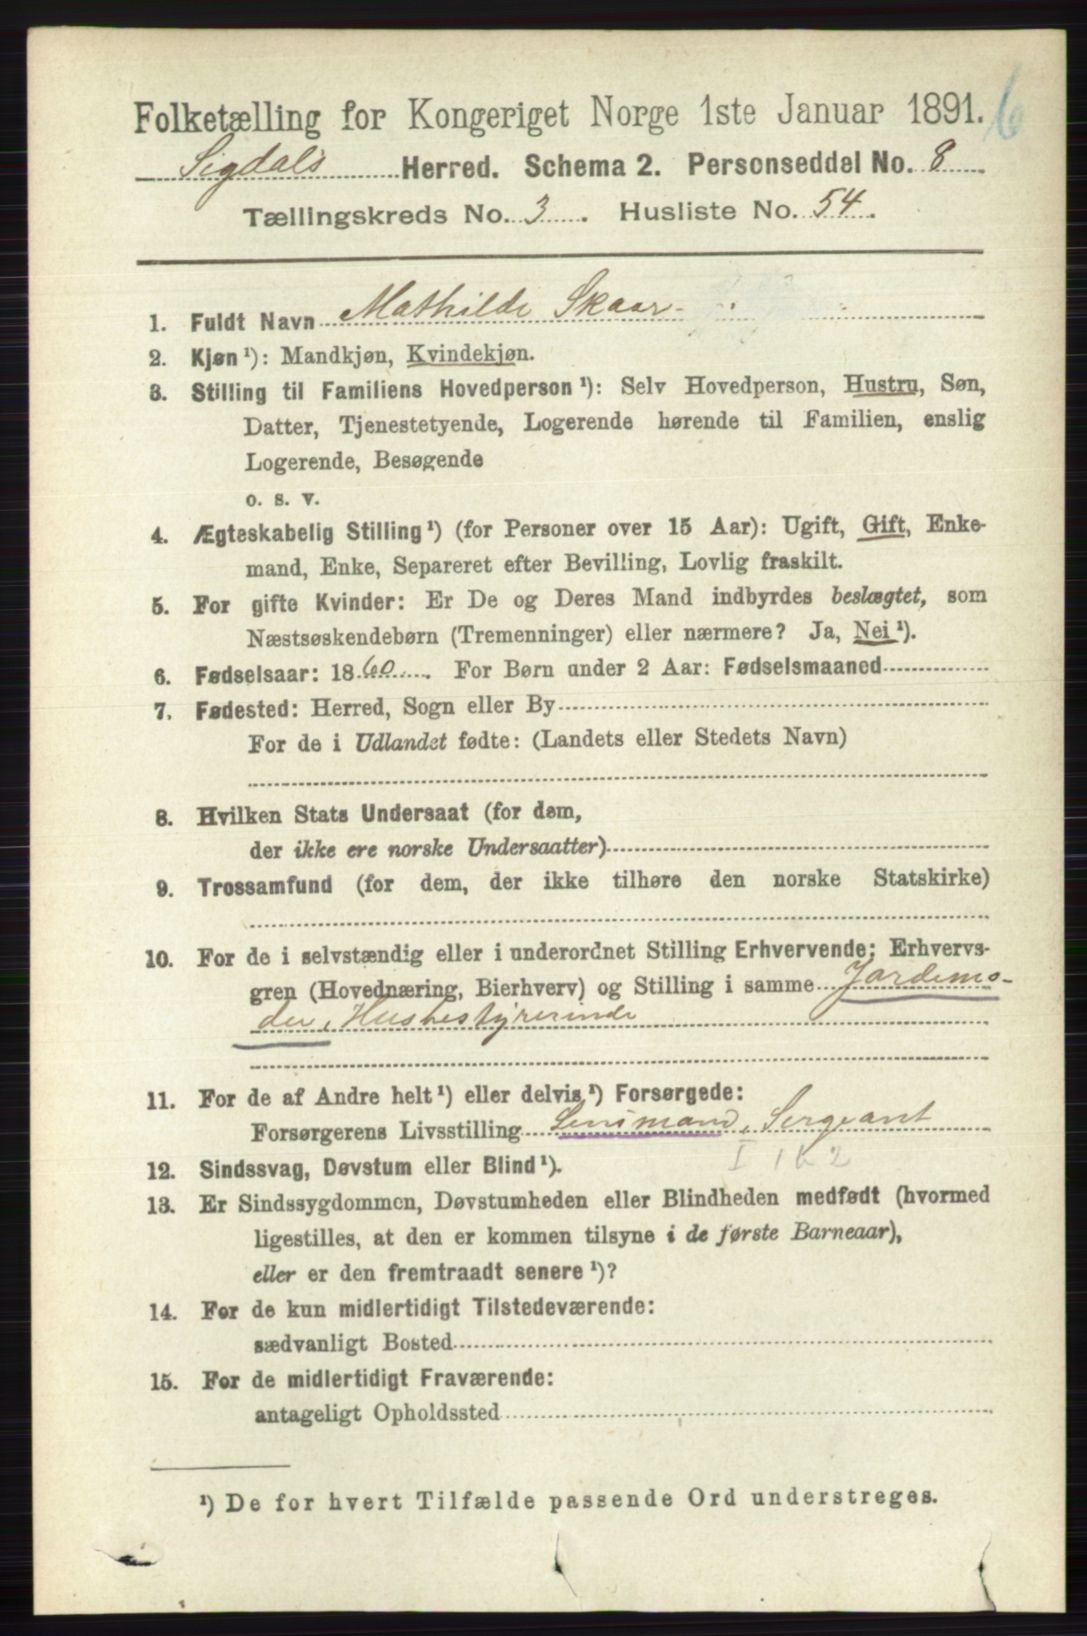 Folketælling for Kongeriget Norge 1ste Januar 1891. 6
Sigdals Herred. Schema 2. Personseddel No. 8
Tællingskreds No. 3. Husliste No. 54.
1. Fuldt Navn Mathilde Skaar
2. Kjøn ¹): Mandkjøn, Kvindekjøn.
3. Stilling til Familiens Hovedperson ¹): Selv Hovedperson, Hustru, Søn,
Datter, Tjenestetyende, Logerende hørende til Familien, enslig
Logerende, Besøgende
o. s. v.
4. Ægteskabelig Stilling ¹) (for Personer over 15 Aar): Ugift, Gift, Enke-
mand, Enke, Separeret efter Bevilling, Lovlig fraskilt.
5. For gifte Kvinder: Er De og Deres Mand indbyrdes beslægtet, som
Næstsøskendebørn (Tremenninger) eller nærmere? Ja, Nei ¹).
6. Fødselsaar: 1860. For Børn under 2 Aar: Fødselsmaaned
7. Fødested: Herred, Sogn eller By
For de i Udlandet fødte: (Landets eller Stedets Navn)
8. Hvilken Stats Undersaat (for dem,
der ikke ere norske Undersaatter)
9. Trossamfund (for dem, der ikke tilhøre den norske Statskirke)
10. For de i selvstændig eller i underordnet Stilling Erhvervende: Erhvervs-
gren (Hovednæring, Bierhverv) og Stilling i samme Jordemo-
der, Husbestyrerinde
11. For de af Andre helt ¹) eller delvis ¹) Forsørgede:
Forsørgerens Livsstilling Lensmand, Sergeant
12. Sindssvag, Døvstum eller Blind ¹).
13. Er Sindssygdommen, Døvstumheden eller Blindheden medfødt (hvormed
ligestilles, at den er kommen tilsyne i de første Barneaar),
eller er den fremtraadt senere ¹)?
14. For de kun midlertidigt Tilstedeværende:
sædvanligt Bosted
15. For de midlertidigt Fraværende:
antageligt Opholdssted
¹) De for hvert Tilfælde passende Ord understreges.